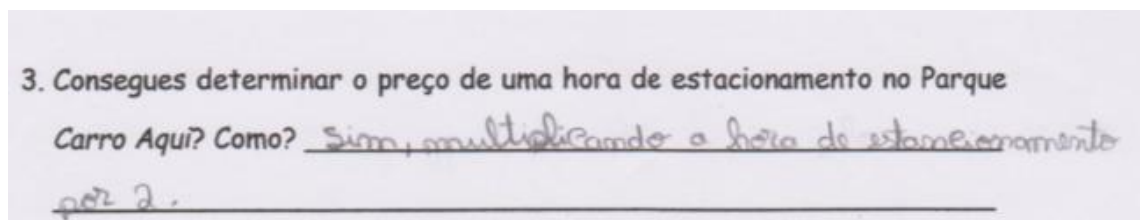 3. Consegues determinar o preço de uma hora de estacionamento no Parque
Carro Aqui? Como? Sim, multiplicando a hora de estameionamento
por 2.